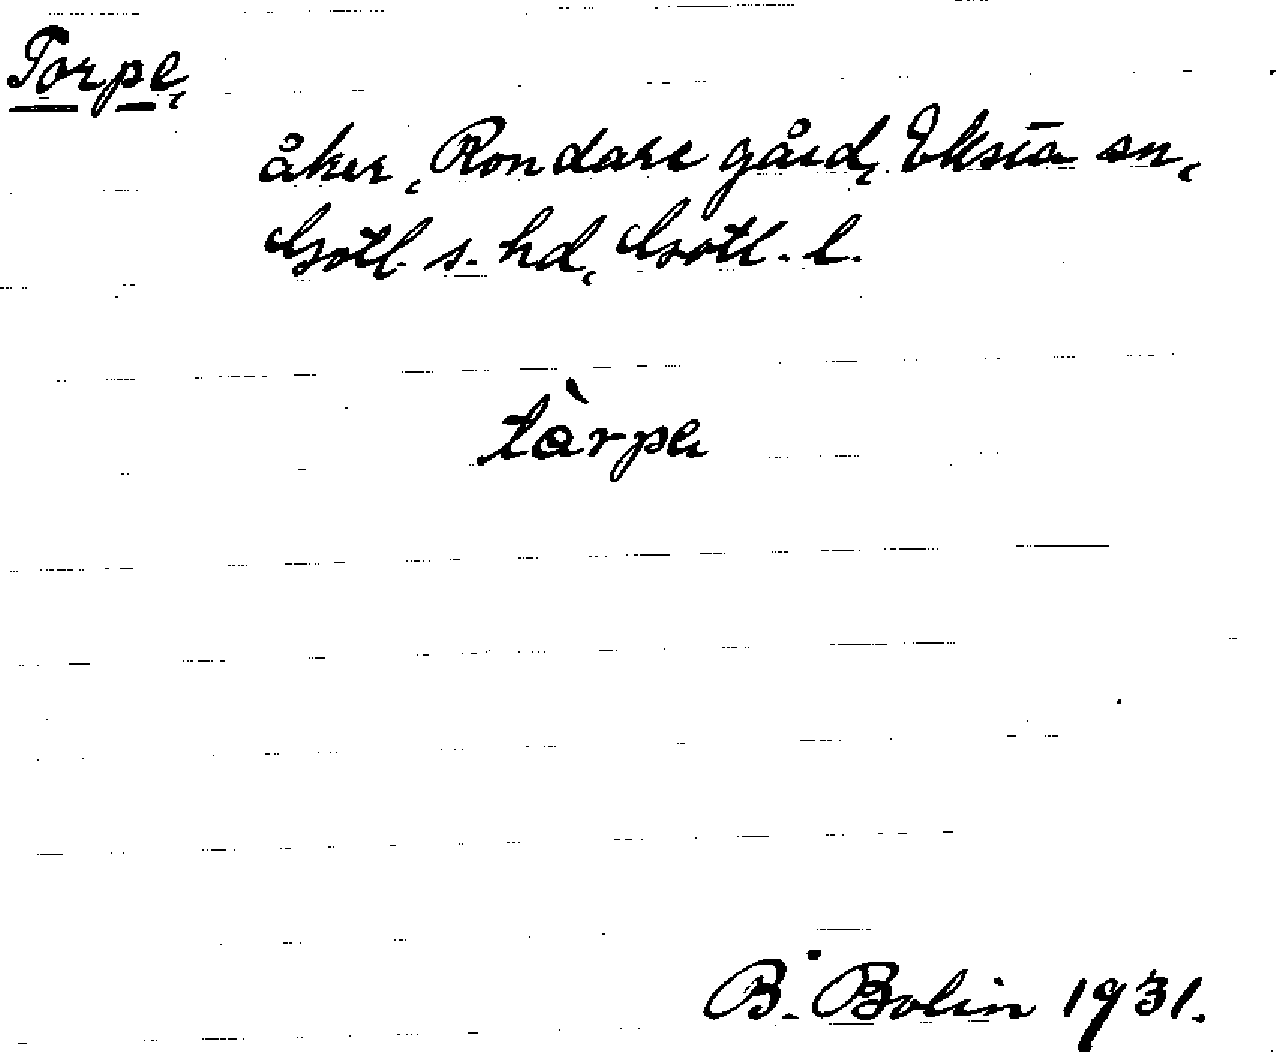 Torpe,
åker, Rondare gård, Eksta sn,
Gotl. s. hd, Gotl. l.
tàrpe
B. Bolin 1931.